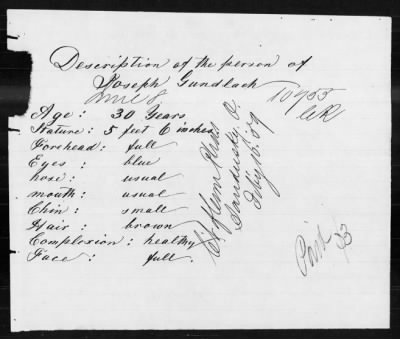 Description of the person of
Joseph Gundlach
June 8
Age : 30 Years
Stature : 5 feet 6 inches
Forehead : full
Eyes : blue
nose : usual
mouth : usual
Chin : small
Hair : brown
Complexion : healthy
Face : full.
10453
Sandusky O.
Feby 15. 59